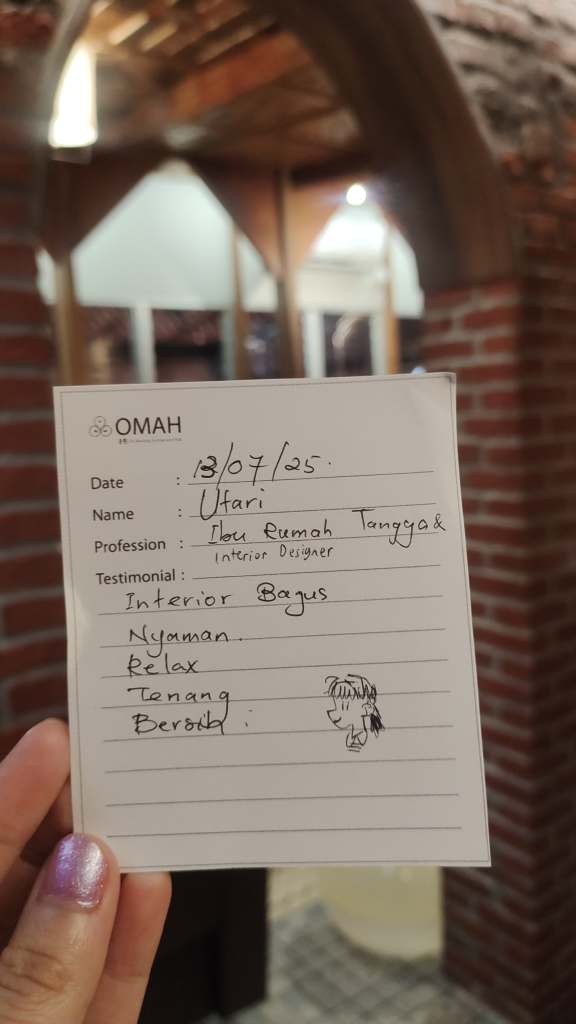 OMAH
Date : 13/07/25.
Name : Utari
Profession : Ibu Rumah Tangga &
Interior Designer
Testimonial :
Interior Bagus
Nyaman.
Relax
Tenang
Bersih :